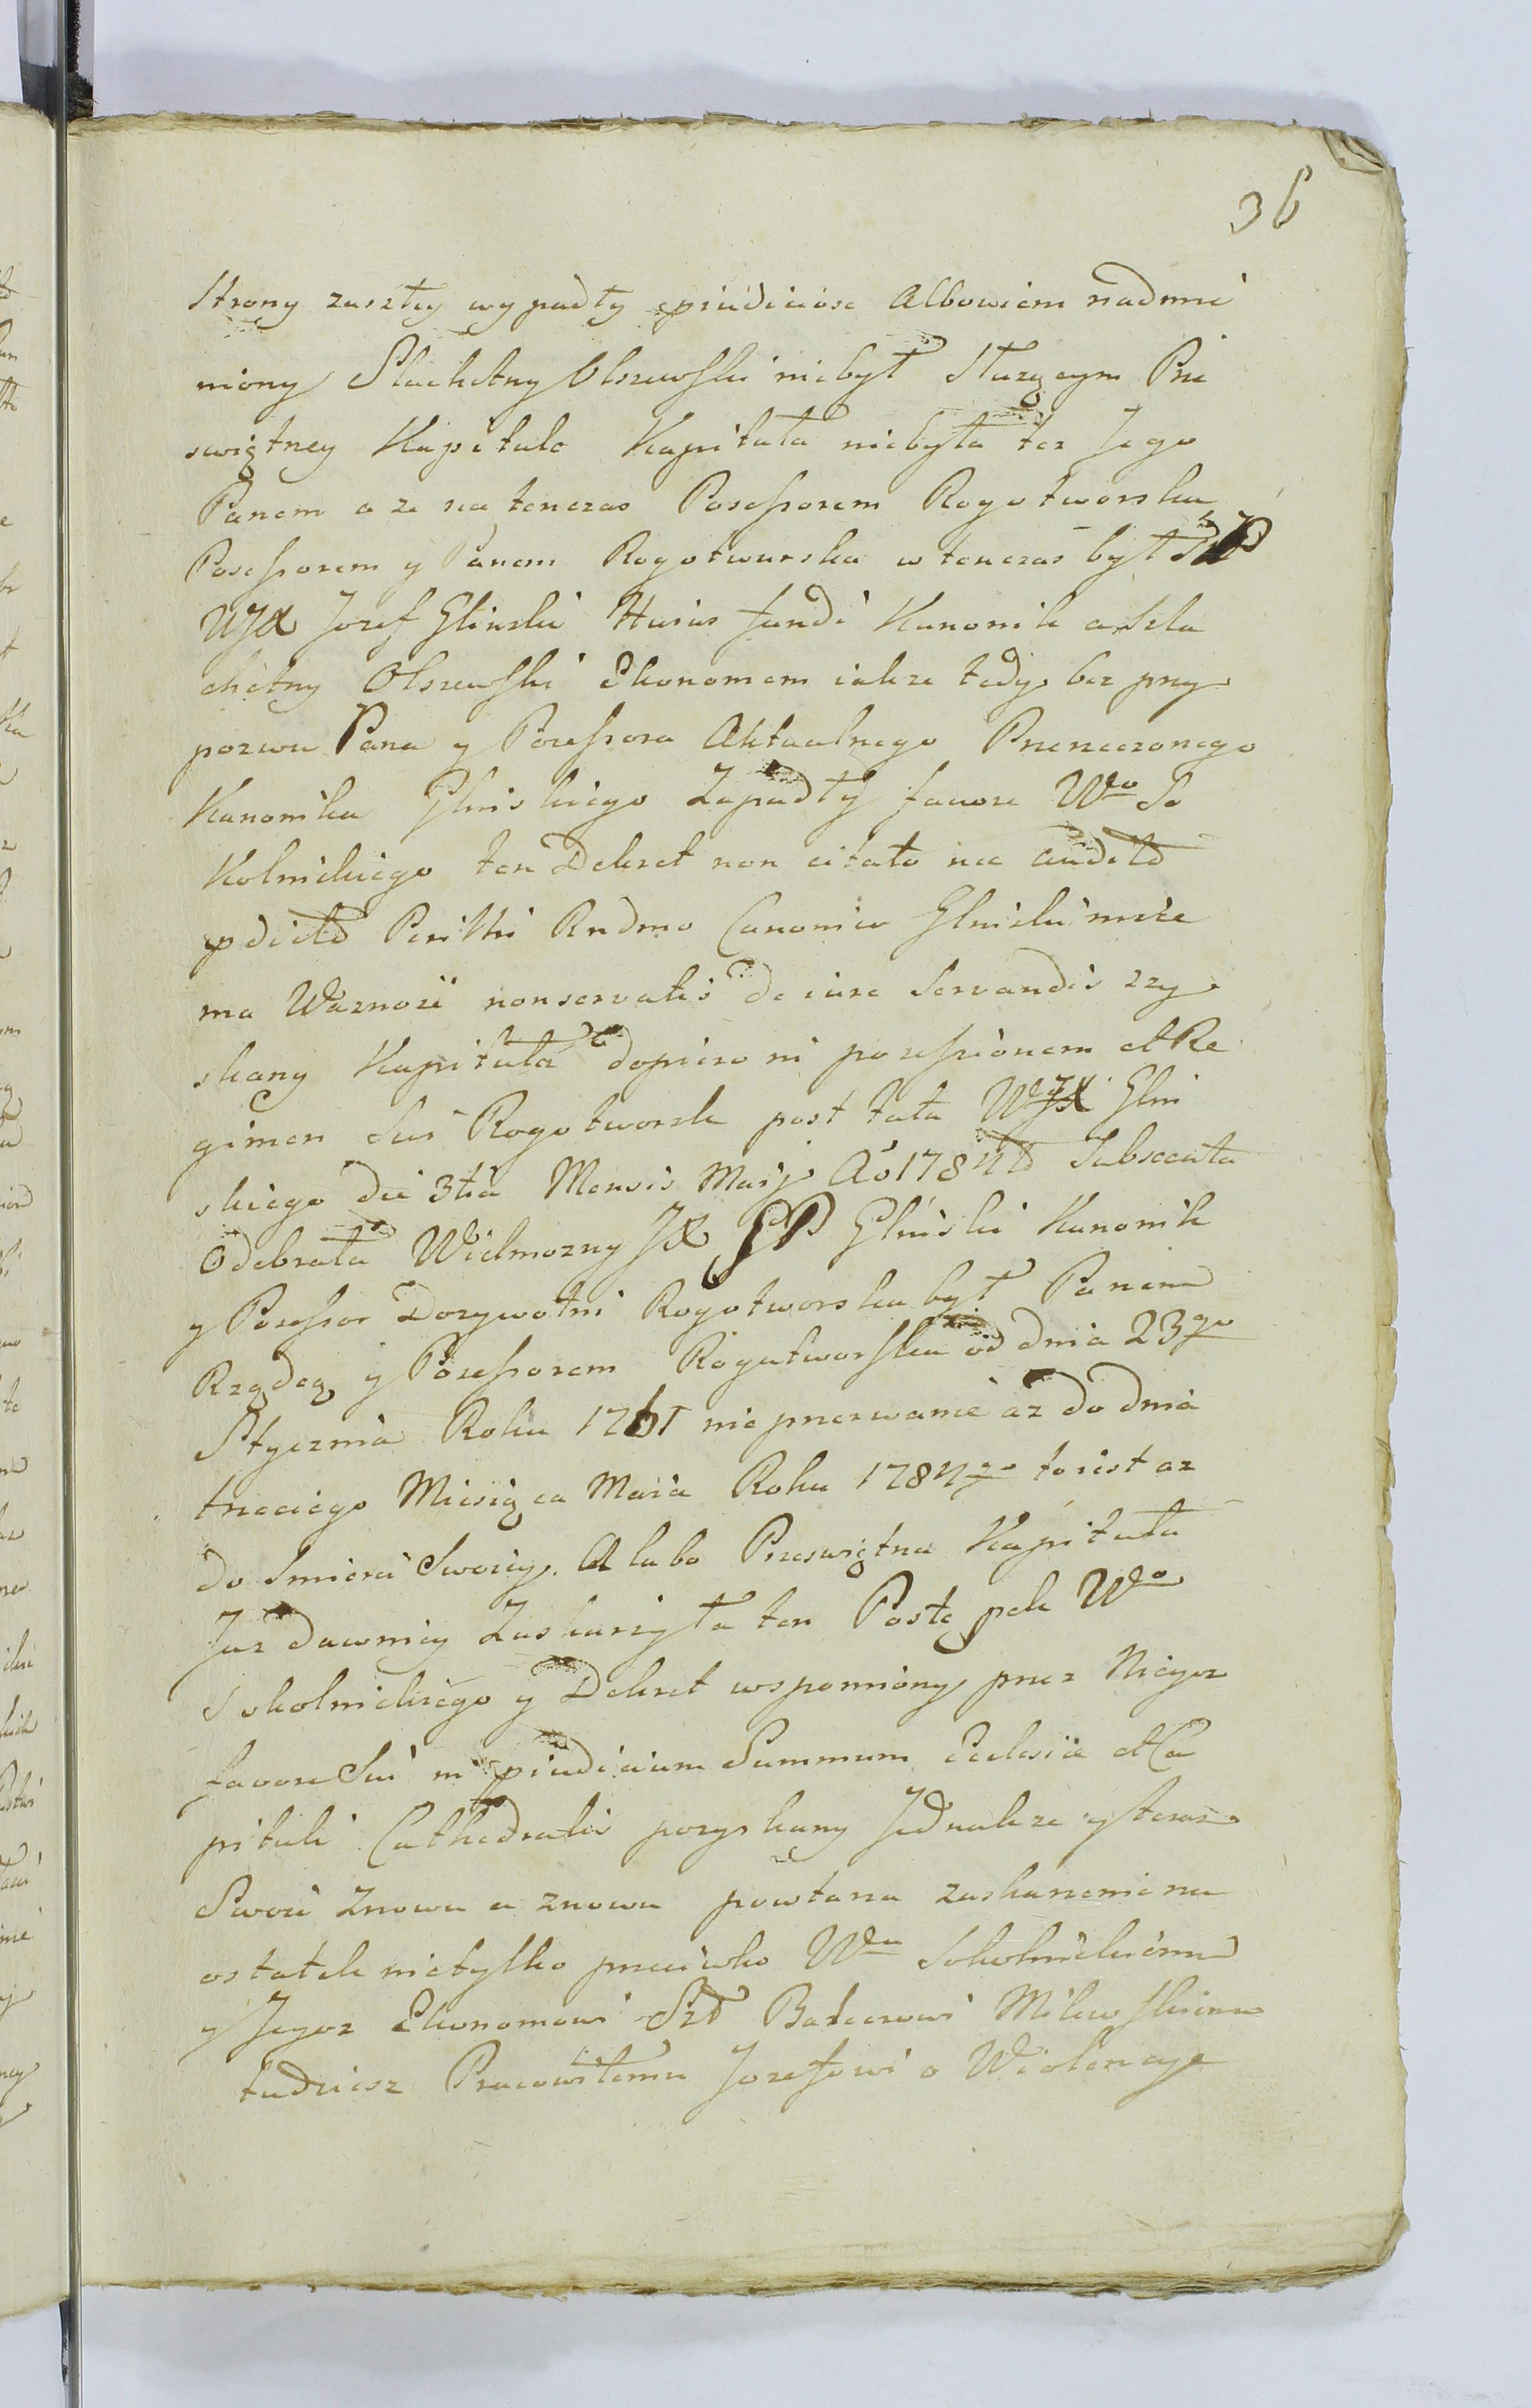 36
Strony zaszłey wypadły ppriudiciose Albowiem nadmie
niony Slachetny Olszewski niebył Służącym Prze
swiętney Kapitule Kapituła niebyła też Jego
Panem a że na tenczas Posessorem Rogotworska
Posessorem y Panem Rogotwurska w tenczas był
WJX Jozef Glinski Huius fundi Kanonik a Szla
chetny Olszewski Ekonomem iakże tedy bez przy
pozwu Pana y Possessora Aktualnego Przerzeczonego
Kanonika Glinskiego Zapadły favore Wgo So
kolnickiego ten Dekret non citato nec audito
pdicto Perillri Rndmo Canonico Glinski nie
ma Wazności non servatis de iure Servandis zzy
skany Kapituła dopiero in possessionem et Re
gimen Sui Rogotworsk post fata WJX Glin
skiego die 3tia Mensis Maij Ao 1784to Subsecuta
Odebrała Wielmozny JX Gliński Kanonik
y Possessor Dozywotni Rogotworska był Panem
Rządcą y Possessorem Rogutworska od dnia 23go
Stycznia Roku 1761 nieprzerwanie aż do dnia
trzeciego Miesiąca Maia Roku 1784go to iest az
do Smierci Swoiey. A lubo Przeswiętna Kapituła
Juz dawniey Zaskarzyła ten Postępek Wgo
Sokolnickiego y Dekret wspomniony przez Niegoz
favore Sui in ppiudicium Summum Ecclesiæ et Ca
pituli Cathedralis pozyskany Jednakze y teraz
Swoie Znowu a znowu powtarza zaskarzenie na
ostatek nietylko przeciwko Wmu Sokolnickiemu
y Jegoz Ekonomowi Szt Batcerowi Milewskiemu
tudziesz Pracowitemu Jozefowi o Wiolencye